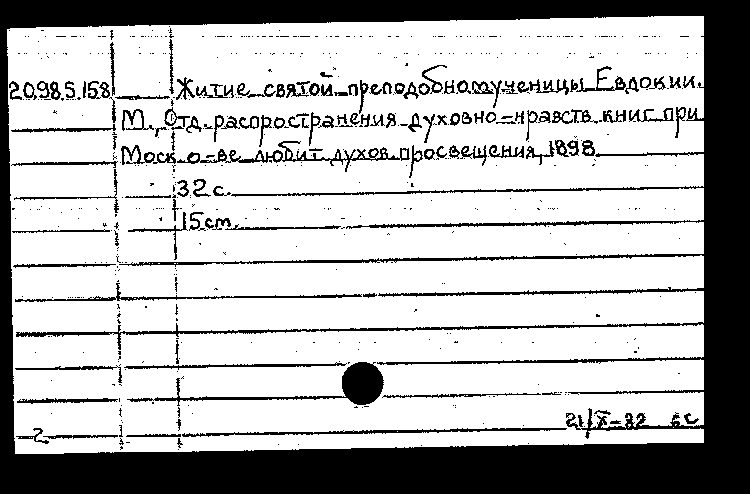 20.98.5.158 Житие святой преподобномученицы Евдокии.
М., Отд. распространения духовно-нравств. книг при
Моск. о-ве любит. духов. просвещения, 1898.
32 с.
15 см.
21/X-82
2